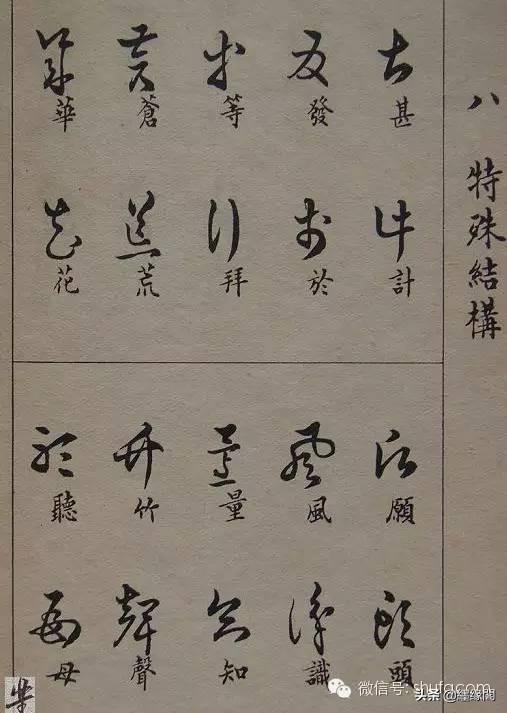 八 特殊結構
甚 計
發 於
等 拜
蒼 荒
華 花
願 頭
風 識
量 知
竹 聲
聽 母
微信号: shufacom
头条